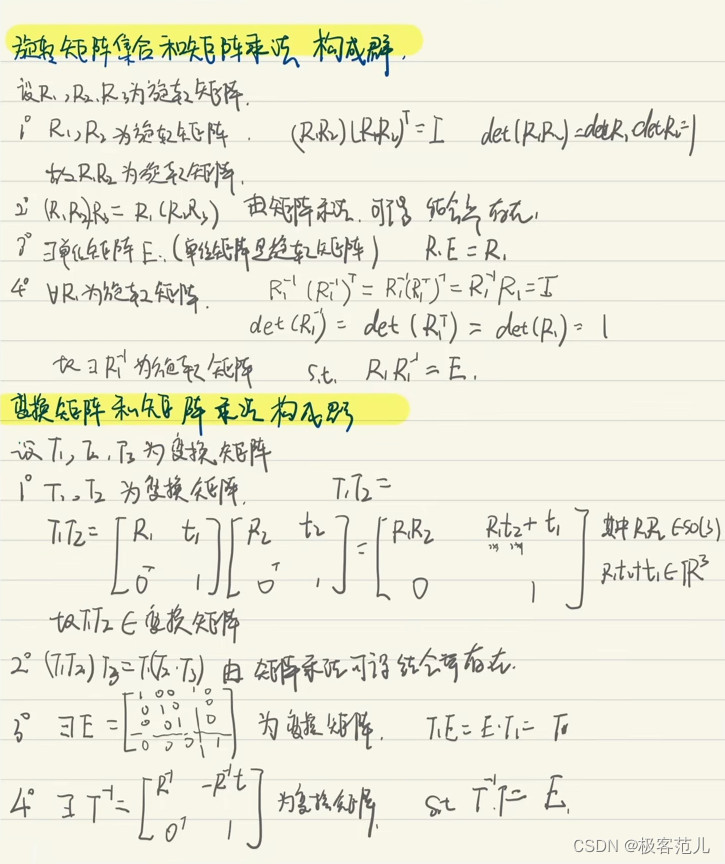 旋转矩阵集合和矩阵乘法 构成群.
设R₁,R₂,R₃为旋转矩阵.
1° R₁,R₂为旋转矩阵. (R₁R₂)(R₁R₂)ᵀ=I det(R₁R₂)=detR₁detR₂=1
故R₁R₂为旋转矩阵.
2° (R₁R₂)R₃=R₁(R₂R₃) 由矩阵乘法.可得 结合律存在.
3° ∃单位矩阵E.(单位矩阵是旋转矩阵) R₁E=R₁
4° ∀R₁为旋转矩阵. R₁⁻¹(R₁⁻¹)ᵀ=R₁⁻¹(R₁ᵀ)ᵀ=R₁⁻¹R₁=I
det(R₁⁻¹)=det(R₁ᵀ)=det(R₁)=1
故∃R₁⁻¹为旋转矩阵 s.t. R₁R₁⁻¹=E.
变换矩阵和矩阵乘法构成群
设T₁,T₂,T₃为变换矩阵
1° T₁,T₂为变换矩阵. T₁T₂=
T₁T₂=[R₁ t₁; 0ᵀ 1][R₂ t₂; 0ᵀ 1]=[R₁R₂ R₁t₂+t₁; 0 1] 其中R₁R₂∈SO(3)
R₁t₂+t₁∈ℝ³
故T₁T₂∈变换矩阵
2° (T₁T₂)T₃=T₁(T₂·T₃) 由矩阵乘法可得结合律存在.
3° ∃E=[1 0 0 0; 0 1 0 0; 0 0 1 0; 0 0 0 1]为变换矩阵. T₁E=E·T₁=T₁
4° ∃T⁻¹=[R⁻¹ -R⁻¹t; 0ᵀ 1]为变换矩阵. s.t T⁻¹T=E.
CSDN @极客范儿